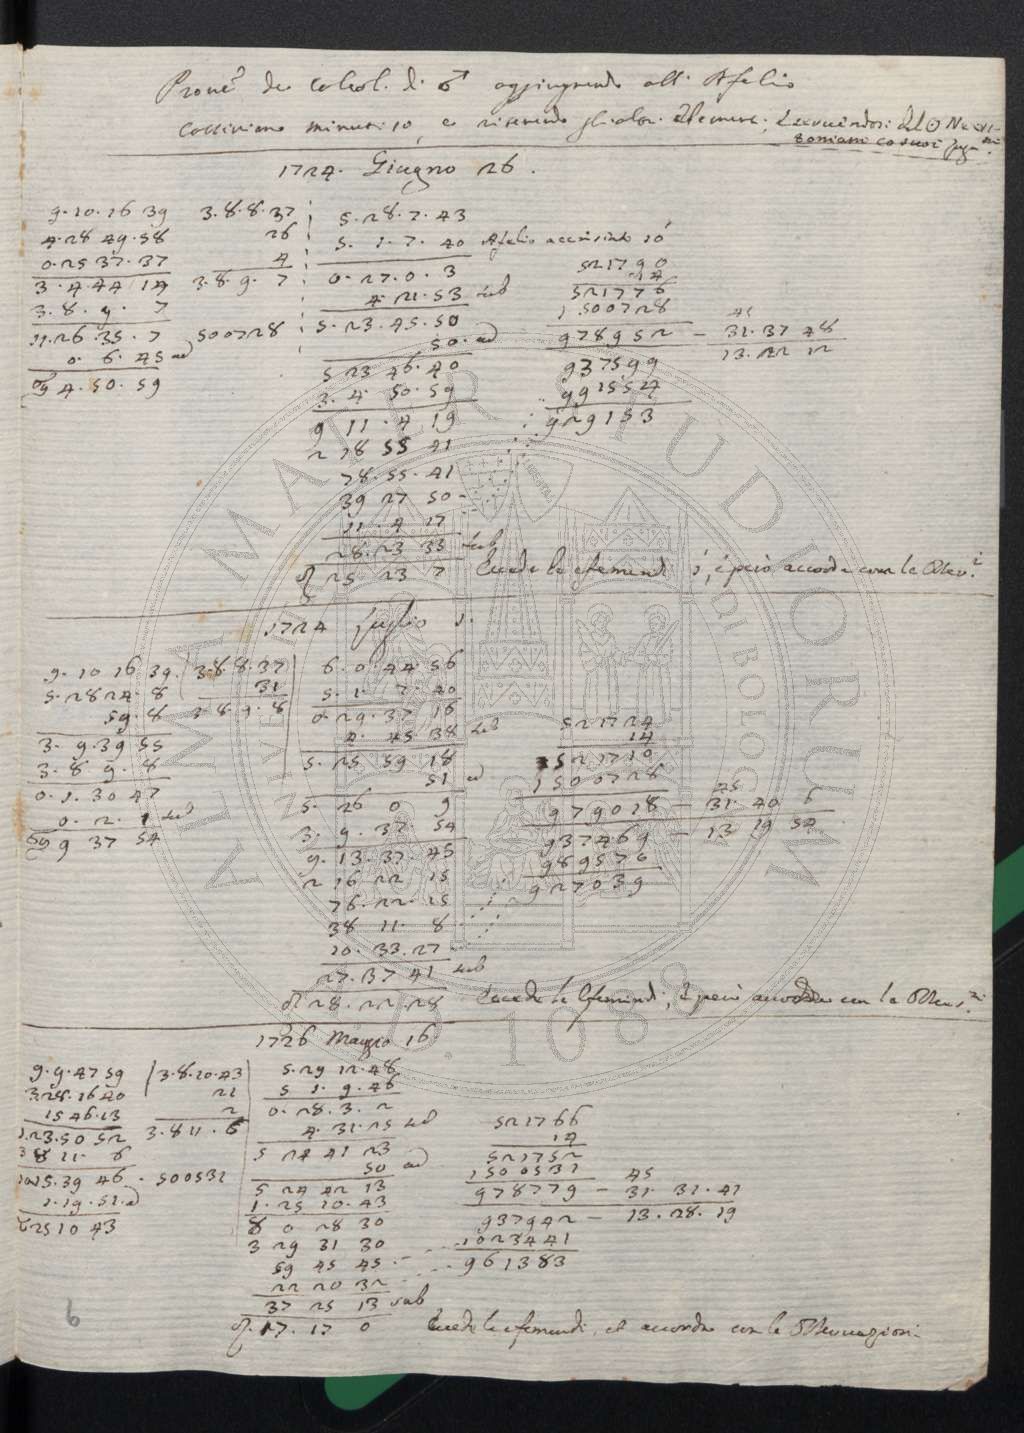 Prove de Calcol. di ♂ aggiugnendo all' Afelio
minuti 10, e ritenendo gli altri
1724. Giugno 26.
9.10.16 39 3.8.8.37 5.28.2.43
4.28 49.58 26 5. 1.7.40 Afelio accresciuto 10'
0.25 37.37 4 0.27.0.3 521790
3.4 44 14 3.8.9.7 4.21.53 sub 14
3.8.9.7 5.23.45.50 521776
11.26.35.7 500728 50. ad 1500728 45
0.6.45 ad 5 23 46.40 978952 – 31.37 48
♋ 4.50.59 3.4 50.59 937599 13.22 12
9 11.4 19 991554
2 18 55 41 929153
78.55.41
39 27 50
11.4 17
28.23 33 sub
♂ 25 23 7 Excede le efemeridi, è però accorda con le Osser.i
1724 Luglio 1.
9.10 16 39. 3.8.8.37 6.0.44.56
5.28 24.8 31 5.1.7.40
59.8 3.8.9.8 0.29.37 16
3.9.39 55 4.45 38 sub 521724
3.8 9.8 5.25 59 18 14
0.1.30 47 51 ad 521710
0.2.1 sub 5.26 0 9 1500728 45
♋ 9 37 54 3.9.37.54 979018 – 31.40 6
9.13.37.45 937469 – 13 19 54
2 16 22 15 989576
76.22.15 927039
38 11 8
10.33.27
27.37 41 sub
♂ 28.22.28 Excede le Efemeridi, è però accorda con le Osser.
1726 Maggio 16
9.9.47 59 3.8.10.43 5.29 12.48
3.28.16 40 21 5 1.9.46
15 46.13 2 0.28.3.2
1.23.50 52 3.8 11.6 4.31.25 ad 521766
3 8 11.6 5 24 41 23 14
10.15.39 46. 500531 50 ad 521752
1.19.51 ad 5 24 42 13 1500531 45
25 10 43 1.25 10.43 978779 – 31.31.41
8 0 28 30 937942 – 13.28.19
3 29 31 30 1023441
59 45 45 961383
22 20 32
37 25 13 sub
♂ 17.17 0 Excede le efemeridi, et accorda con le Osservazioni
6
ALMA MATER STUDIORUM
UNIVERSITÀ DI BOLOGNA
A.D. 1088